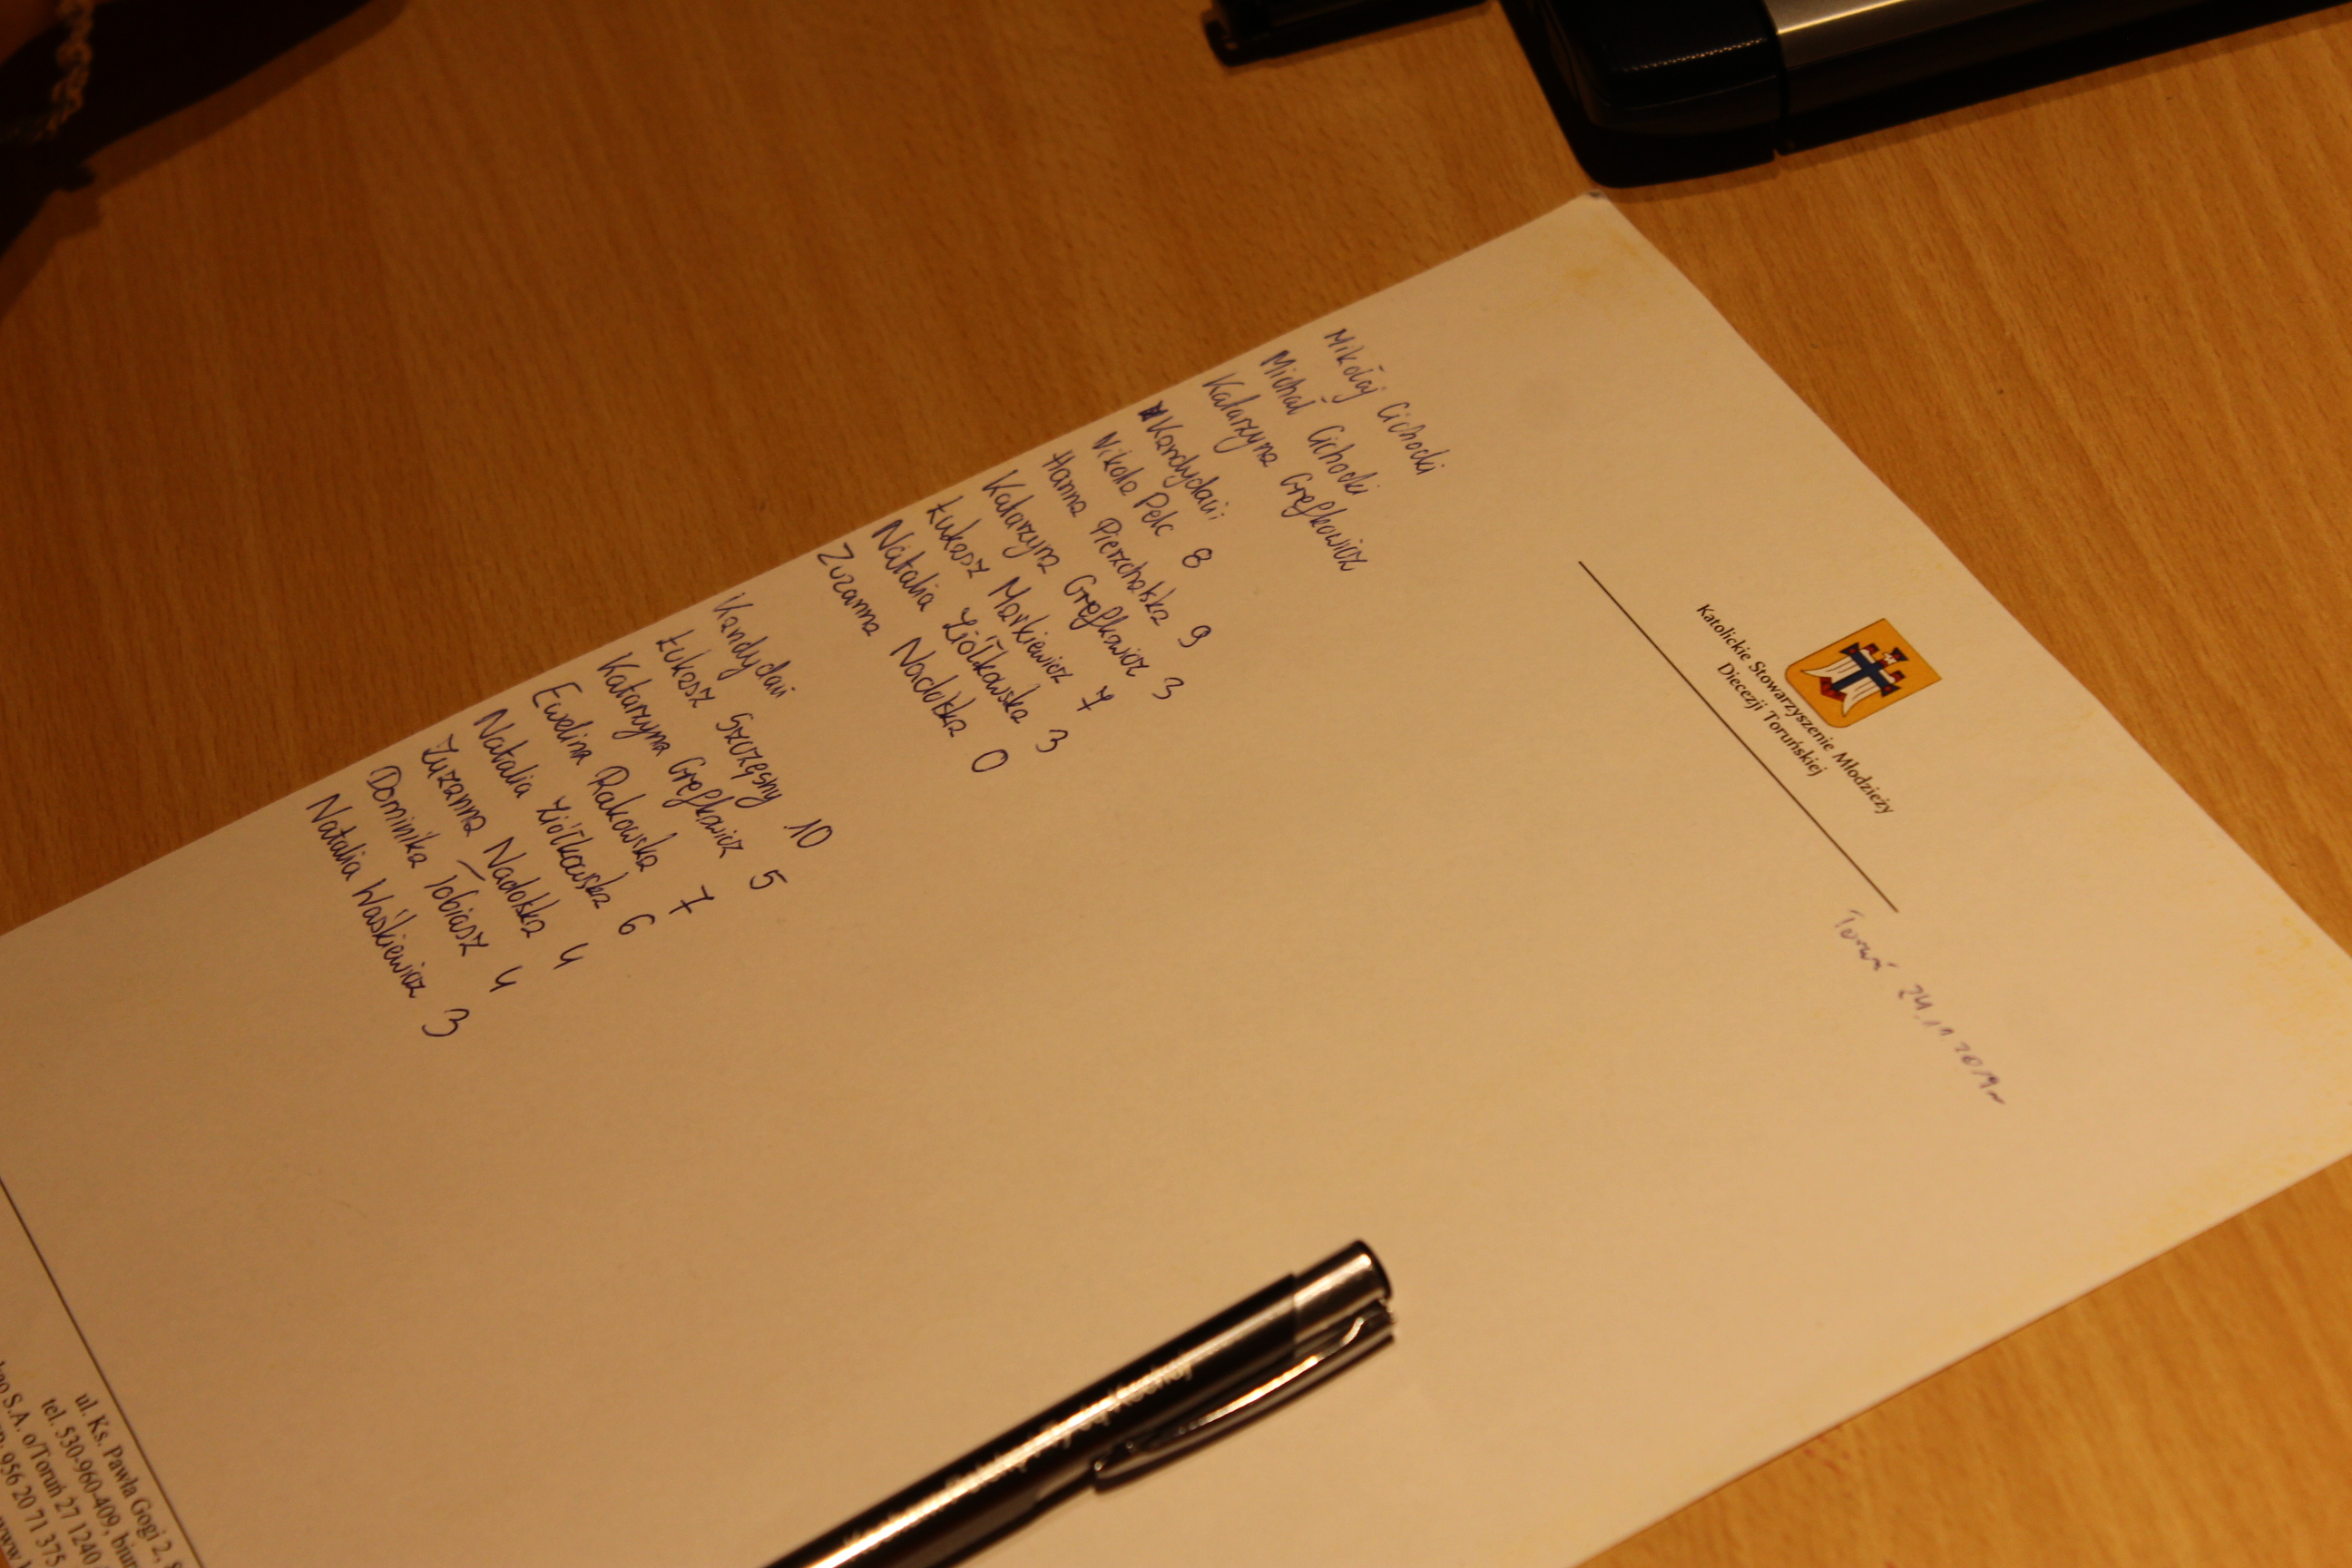 Katolickie Stowarzyszenie Młodzieży
Diecezji Toruńskiej
Toruń 24.11.2019r
Mikołaj Cichocki
Michał Cichocki
Katarzyna Gręfkowicz
Kandydaci:
Nikola Pelc 8
Hanna Pierzchalska 9
Katarzyna Gręfkowicz 3
Łukasz Markiewicz 7
Natalia Ziółkowska 3
Zuzanna Nadolska 0
Kandydaci
Łukasz Szczęsny 10
Katarzyna Gręfkowicz 5
Ewelina Rakowska 7
Natalia Ziółkowska 6
Zuzanna Nadolska 4
Dominika Tobiasz 4
Natalia Waśkiewicz 3
ul. Ks. Pawła Gogi 2,
tel. 530-960-409,
S.A. o/Toruń 27 1240
956 20 71 375